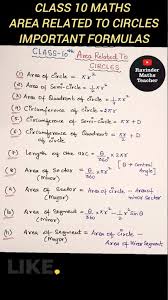 CLASS 10 MATHS
AREA RELATED TO CIRCLES
IMPORTANT FORMULAS
CLASS-10th
Area Related To
CIRCLES
Ravinder
Maths
Teacher
(1) Area of Circle = πr²
(2) Area of Semi-Circle = ½πr²
(3) Area of Quadrant of Circle = ¼πr²
(4) Circumference of Circle = 2πr
(5) Circumference of Semi-Circle =
(6) Circumference of Quadrant =
of Circle
(7) Length of the arc = θ/360 × 2πr
[θ → Central
Angle]
(8) Area of Sector = θ/360 × πr²
(Minor)
(9) Area of Sector = Area of Circle - Area of
(Major) minor Sector
(10) Area of Segment = θ/360 πr² - ½r² sinθ
(Minor)
(11) Area of Segment = Area of Circle -
(Major) Area of Minor Segment
LIKE